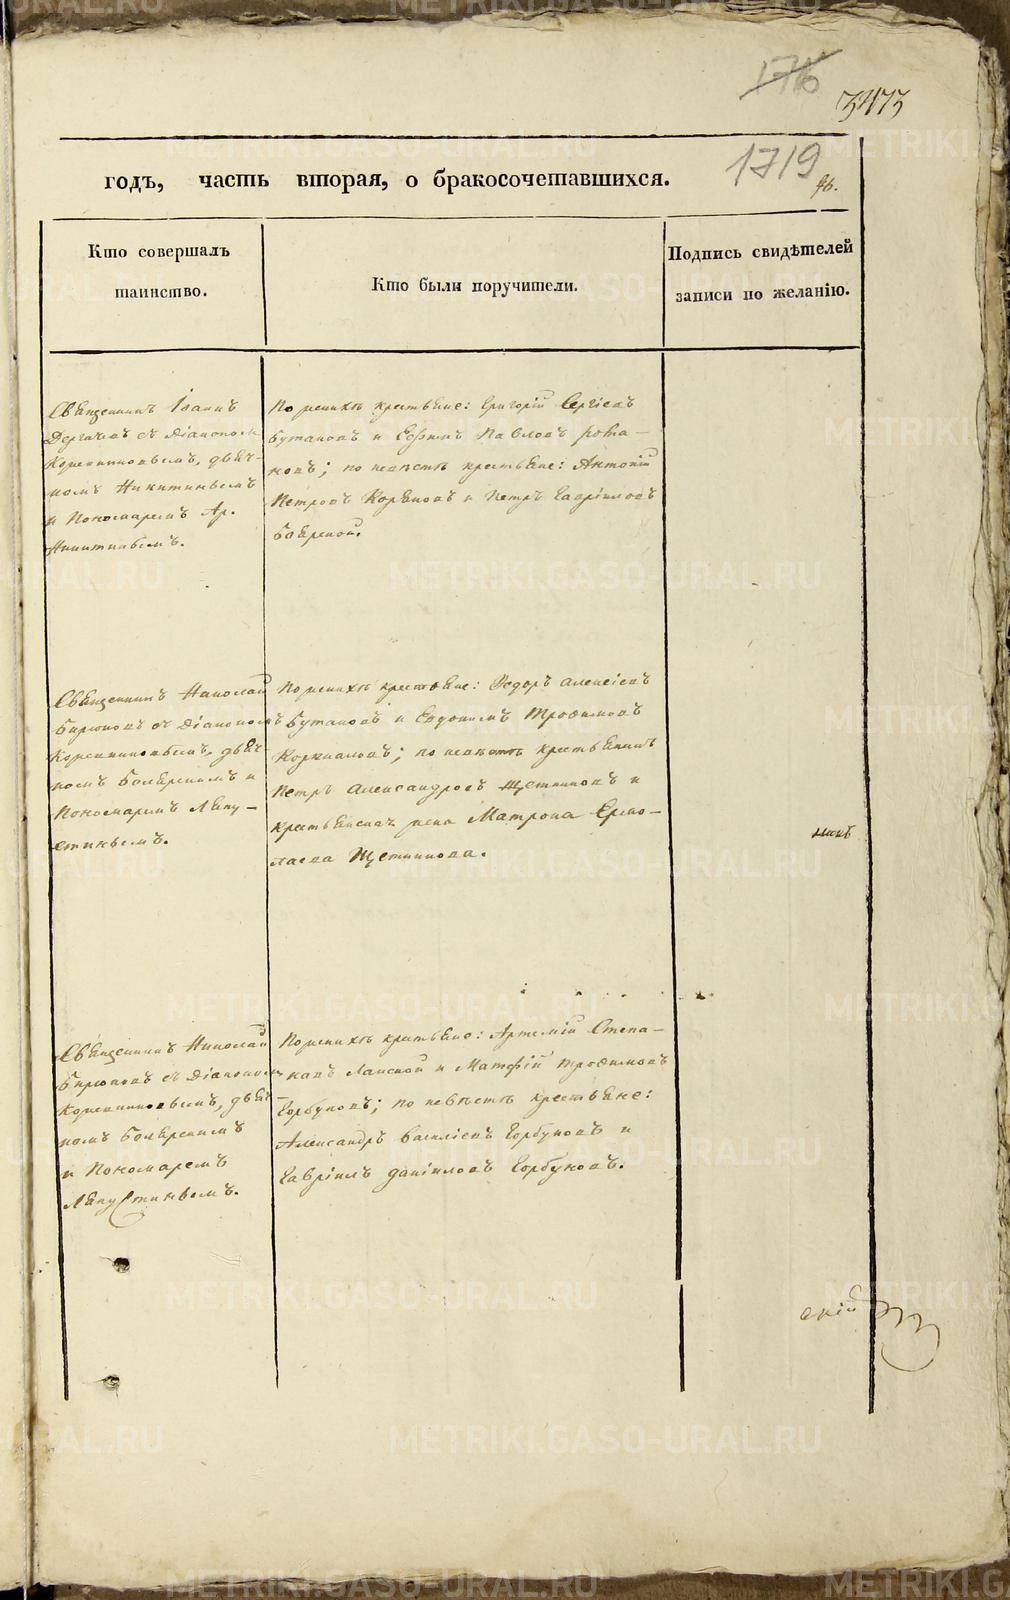 176
3473
1719
годъ, часть вторая, о бракосочетавшихся.
Кто совершалъ
таинство.
Кто были поручители.
Подпись свидѣтелей
записи по желанію.
Священникъ Іоаннъ
съ Діакономъ
Коровниковымъ, дьяч-
комъ Никитинымъ
и Пономаремъ Ар.
Никитинымъ.
По женихѣ крестьяне: Григорій Сергіевъ
Бутаковъ и Ефимъ Павловъ Рома-
новъ; по невѣстѣ крестьяне: Антоній
Петровъ и Петръ Гавріиловъ
Боярской.
Священникъ Николай
Бирюковъ съ Діакономъ
Коровниковымъ, дьяч-
комъ Боярскимъ и
Пономаремъ Ляпу-
стинымъ.
По женихѣ крестьяне: Ѳедоръ Алексіевъ
Бутаковъ и Евдокимъ Трофимовъ
по невѣстѣ крестьянинъ
Петръ Александровъ Щетниковъ и
крестьянская жена Матрона Ермо-
лаева Щетникова.
никъ
Священникъ Николай
Бирюковъ съ Діакономъ
Коровниковымъ, дьяч-
комъ Боярскимъ
и Пономаремъ
Ляпустинымъ.
По женихѣ крестьяне: Артемій Степа-
новъ и Матфій Трофимовъ
Горбуновъ; по невѣстѣ крестьяне:
Александръ Василіевъ Горбуновъ и
Гавріилъ Даніиловъ Горбуновъ.
скій
METRIKI.GASO-URAL.RU